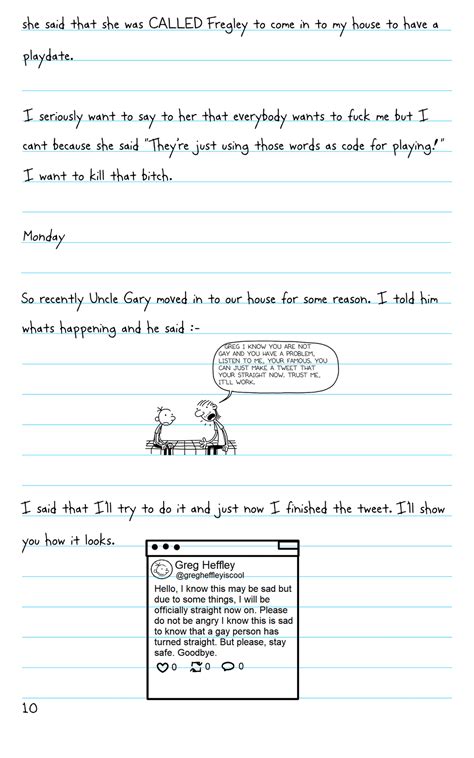 she said that she was CALLED Fregley to come in to my house to have a
playdate.
I seriously want to say to her that everybody wants to fuck me but I
cant because she said "They're just using those words as code for playing!"
I want to kill that bitch.
Monday
So recently Uncle Gary moved in to our house for some reason. I told him
whats happening and he said :-
GREG I KNOW YOU ARE NOT
GAY AND YOU HAVE A PROBLEM,
LISTEN TO ME, YOUR FAMOUS. YOU
CAN JUST MAKE A TWEET THAT
YOUR STRAIGHT NOW. TRUST ME,
IT'LL WORK.
I said that I'll try to do it and just now I finished the tweet. I'll show
you how it looks.
Greg Heffley
@gregheffleyiscool
Hello, I know this may be sad but
due to some things, I will be
officially straight now on. Please
do not be angry I know this is sad
to know that a gay person has
turned straight. But please, stay
safe. Goodbye.
0 0 0
10